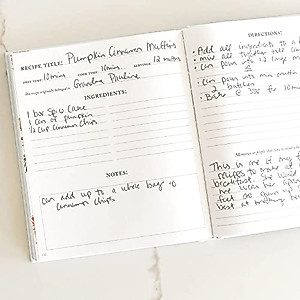 RECIPE TITLE: Pumpkin Cinnamon Muffins
PREP TIME: 10mins COOK TIME: 10mins SERVINGS: 12 muffins
This recipe originally belonged to: Grandma Pauline
INGREDIENTS:
1 box Spice Cake
1 can of pumpkin
1/2 cup cinnamon chips
NOTES:
can add up to a whole bag of
cinnamon chips
DIRECTIONS:
• Add all ingredients to a
• mix all together till
• can pour into 12 large
• can pour into mini muffin
2 batches
• Bake @ 350 for 10
Memories or people that come to mind
This is one of my
recipes to make
breakfast. She
me
feel so grown up
best at